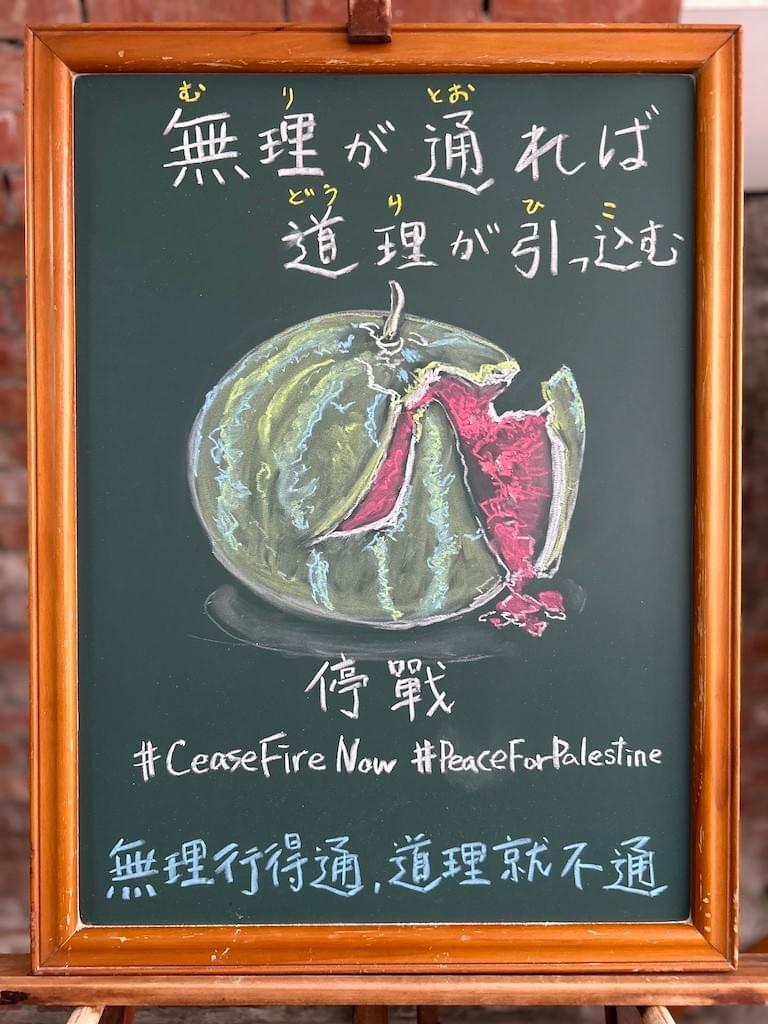 む り とお
無理が通れば
どう り ひ こ
道理が引っ込む
停戰
#CeaseFire Now #PeaceForPalestine
無理行得通,道理就不通